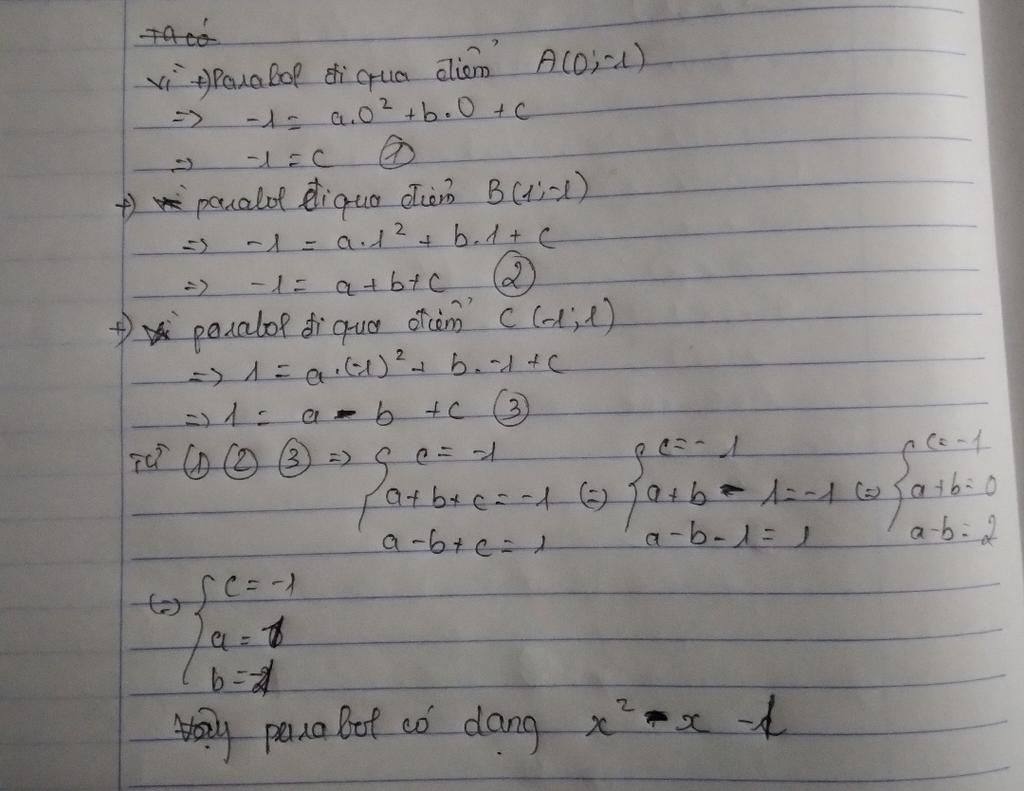 Ta có
Vì +) Parabol đi qua điểm A(0;-1)
=> -1 = a.0² + b.0 + c
=> -1 = c ①
+) Vì parabol đi qua điểm B(1;-1)
=> -1 = a.1² + b.1 + c
=> -1 = a + b + c ②
+) Vì parabol đi qua điểm C (-1;1)
=> 1 = a.(-1)² + b.-1 + c
=> 1 = a - b + c ③
Từ ① ② ③ => { c = -1 { c = -1 { c = -1
a + b + c = -1 (=) a + b - 1 = -1 (=) a + b = 0
a - b + c = 1 a - b - 1 = 1 a - b = 2
(=) { c = -1
a = 1
b = -1
Vậy parabol có dạng x² - x - 1